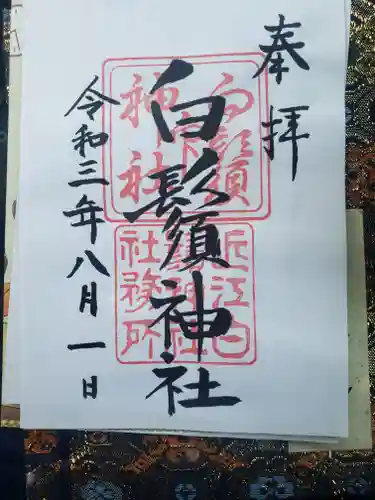 奉拝
白鬚神社
令和三年八月一日
白鬚神社
近江白鬚神社社務所